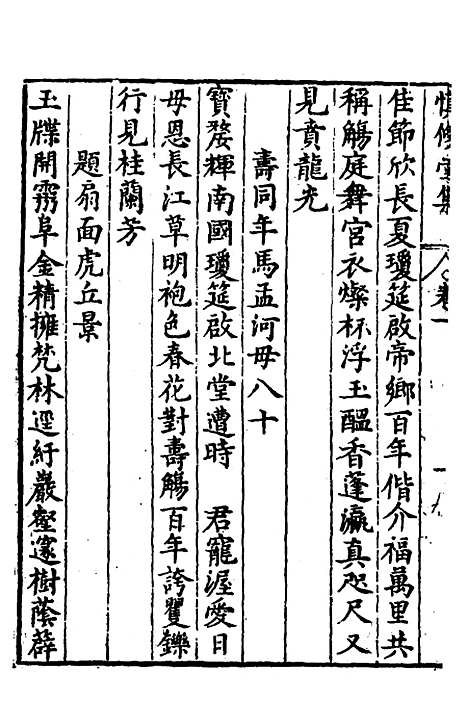 慎修堂集 卷一
佳節欣長夏瓊筵啟帝鄉百年偕介福萬里共
稱觴庭舞宮衣燦杯浮玉醞香蓬瀛真咫尺又
見賁龍光
壽同年馬孟河母八十
寶婺輝南國瓊筵啟北堂遭時 君寵渥愛日
母恩長江草明袍色春花對壽觴百年誇矍鑠
行見桂蘭芳
題扇面虎丘景
玉牒開霧阜金精擁梵林逕紆巖壑邃樹蔭薜